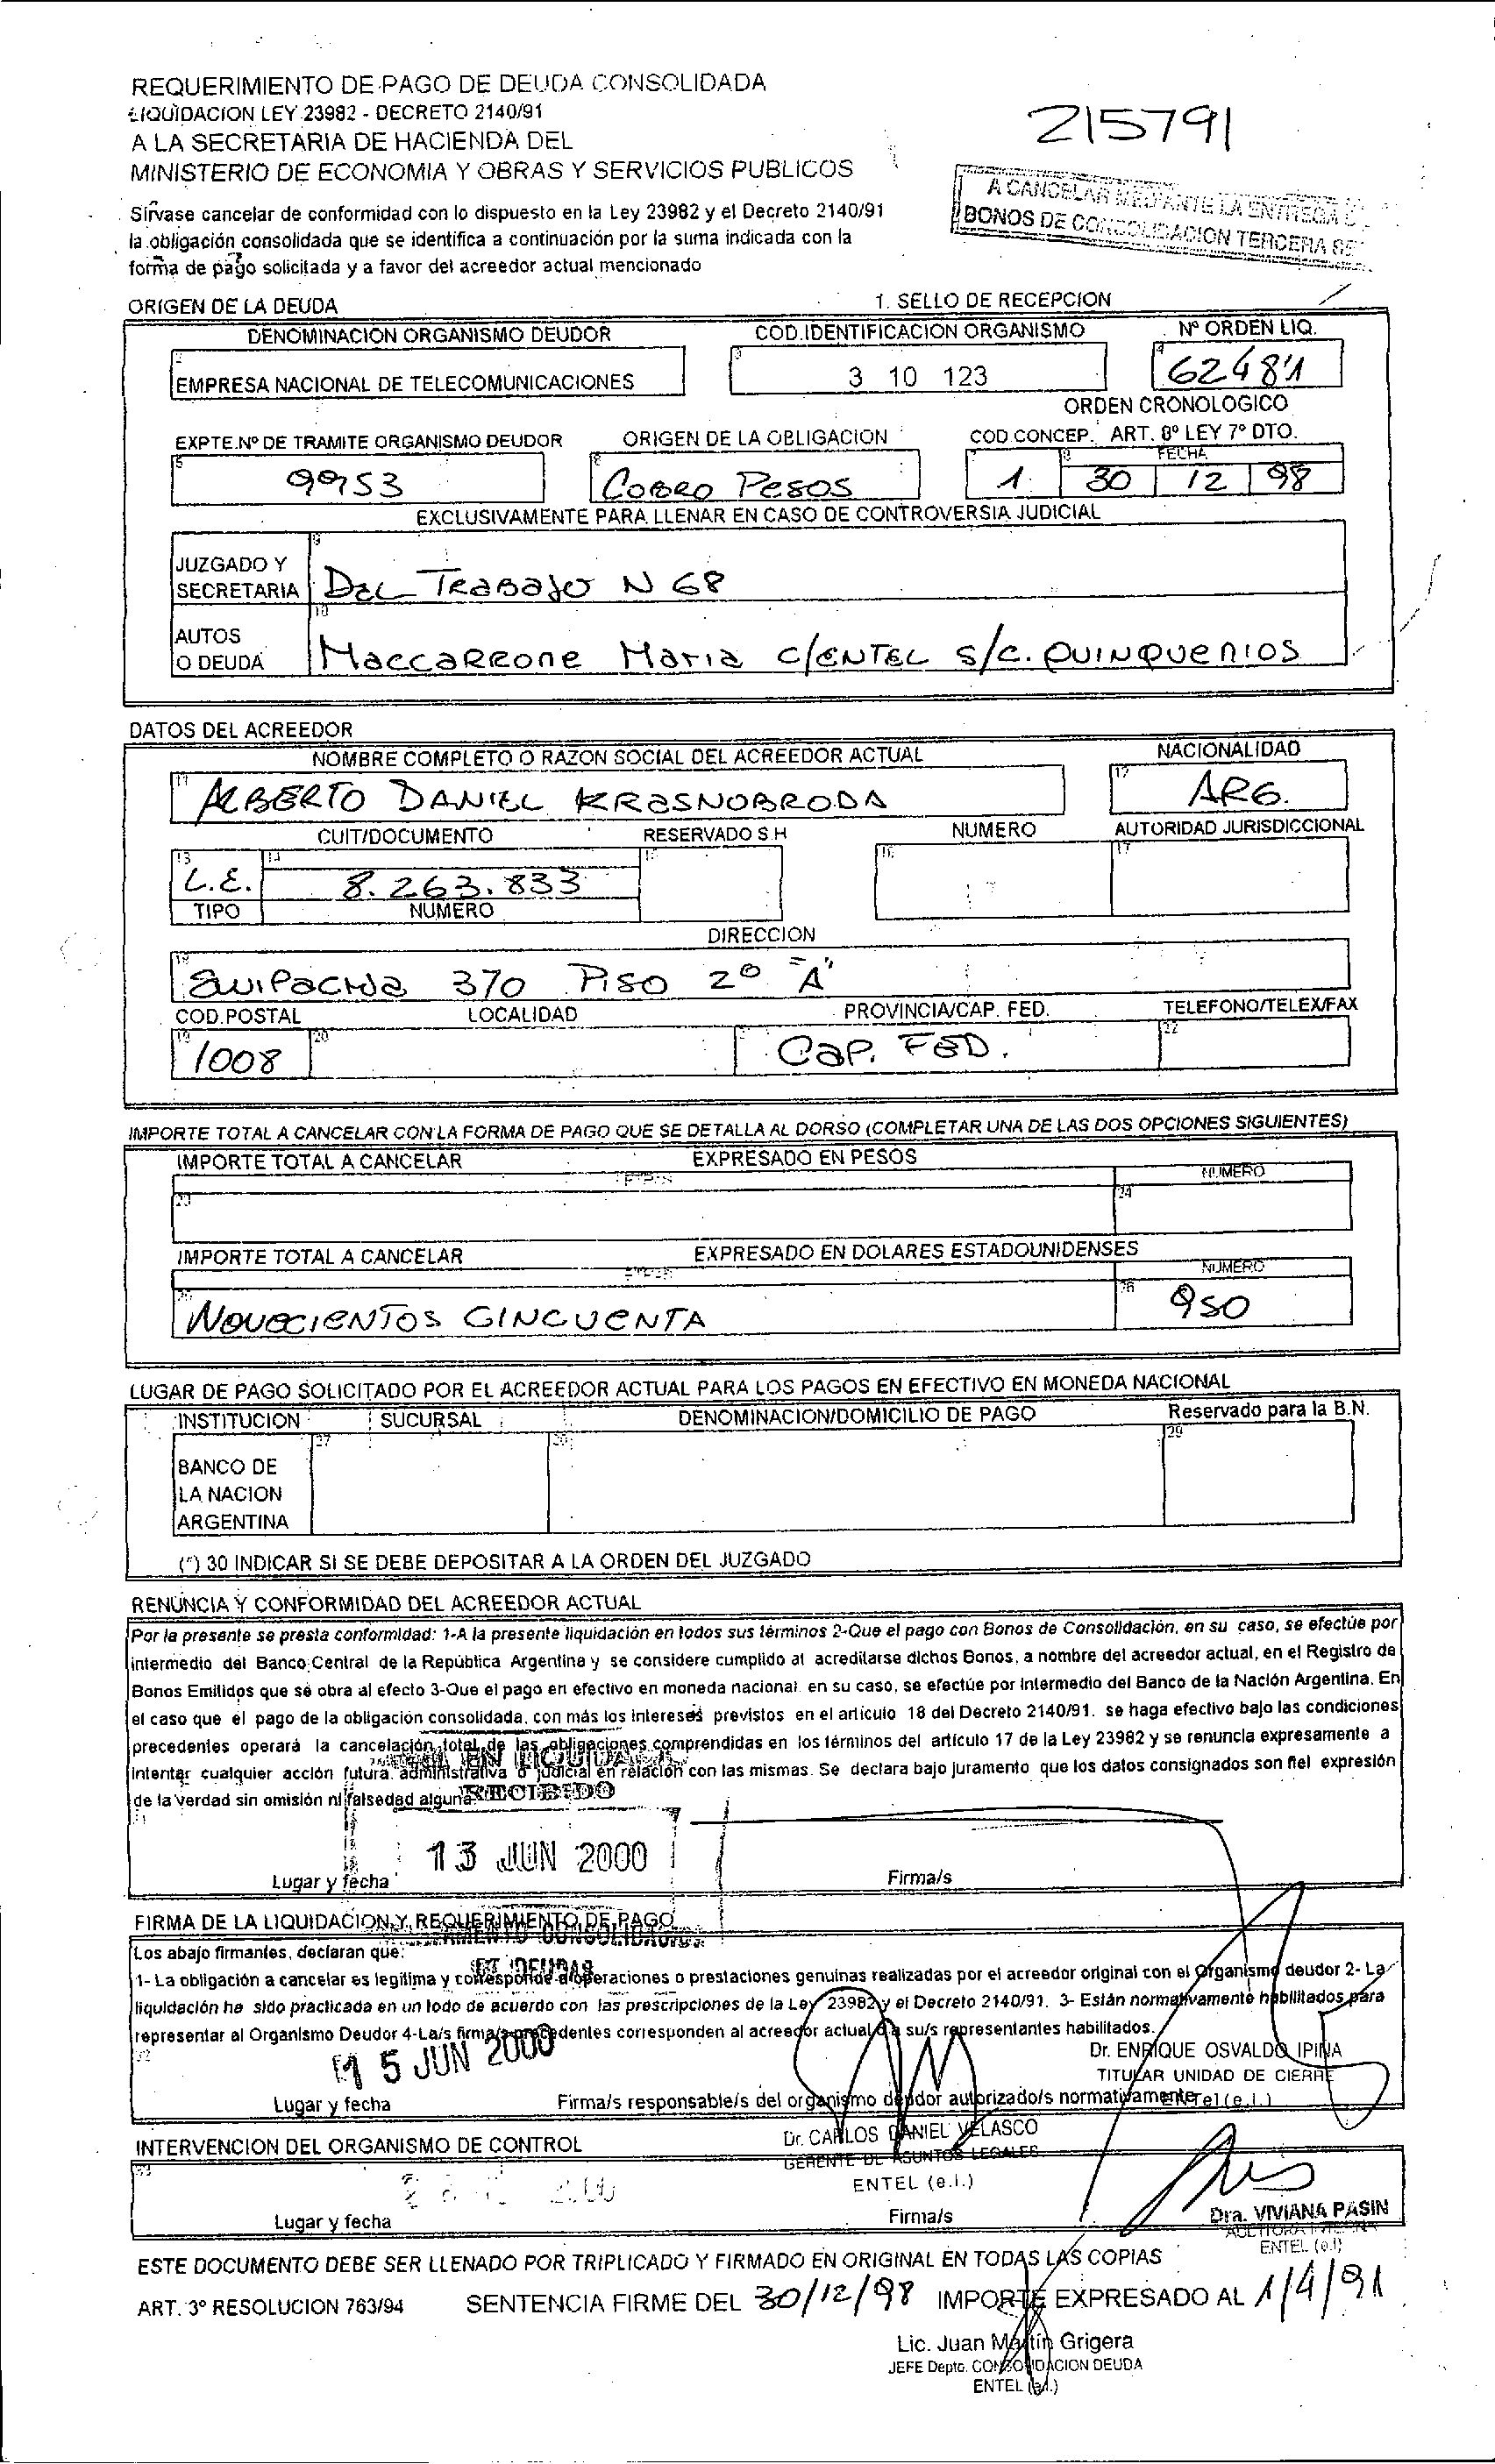 REQUERIMIENTO DE PAGO DE DEUDA CONSOLIDADA
LIQUIDACION LEY 23982 - DECRETO 2140/91
A LA SECRETARIA DE HACIENDA DEL
MINISTERIO DE ECONOMIA Y OBRAS Y SERVICIOS PUBLICOS
215791
A CANCELAR MEDIANTE LA ENTREGA
BONOS DE CONSOLIDACION TERCERA
Sírvase cancelar de conformidad con lo dispuesto en la Ley 23982 y el Decreto 2140/91
la obligación consolidada que se identifica a continuación por la suma indicada con la
forma de pago solicitada y a favor del acreedor actual mencionado
ORIGEN DE LA DEUDA
1. SELLO DE RECEPCION
DENOMINACION ORGANISMO DEUDOR COD.IDENTIFICACION ORGANISMO Nº ORDEN LIQ.
EMPRESA NACIONAL DE TELECOMUNICACIONES 3 10 123 62481
ORDEN CRONOLOGICO
EXPTE.Nº DE TRAMITE ORGANISMO DEUDOR ORIGEN DE LA OBLIGACION COD.CONCEP. ART. 8º LEY 7º DTO.
FECHA
9953 Cobro Pesos 1 30 12 98
EXCLUSIVAMENTE PARA LLENAR EN CASO DE CONTROVERSIA JUDICIAL
JUZGADO Y
SECRETARIA Del Trabajo N 68
AUTOS
O DEUDA Maccarrone Maria c/ENTEL s/c. QUINQUENIOS
DATOS DEL ACREEDOR
NOMBRE COMPLETO O RAZON SOCIAL DEL ACREEDOR ACTUAL NACIONALIDAD
ALBERTO DANIEL KRASNOBRODA ARG.
CUIT/DOCUMENTO RESERVADO S.H NUMERO AUTORIDAD JURISDICCIONAL
13 14 15 16 17
L.E. 8.263.833
TIPO NUMERO
DIRECCION
Suipacha 370 Piso 2º "A"
COD.POSTAL LOCALIDAD PROVINCIA/CAP. FED. TELEFONO/TELEX/FAX
1008 Cap. FED.
IMPORTE TOTAL A CANCELAR CON LA FORMA DE PAGO QUE SE DETALLA AL DORSO (COMPLETAR UNA DE LAS DOS OPCIONES SIGUIENTES)
IMPORTE TOTAL A CANCELAR EXPRESADO EN PESOS
NUMERO
23 24
IMPORTE TOTAL A CANCELAR EXPRESADO EN DOLARES ESTADOUNIDENSES
NUMERO
26
NOVECIENTOS CINCUENTA 950
LUGAR DE PAGO SOLICITADO POR EL ACREEDOR ACTUAL PARA LOS PAGOS EN EFECTIVO EN MONEDA NACIONAL
INSTITUCION SUCURSAL DENOMINACION/DOMICILIO DE PAGO Reservado para la B.N.
27 29
BANCO DE
LA NACION
ARGENTINA
(*) 30 INDICAR SI SE DEBE DEPOSITAR A LA ORDEN DEL JUZGADO
RENUNCIA Y CONFORMIDAD DEL ACREEDOR ACTUAL
Por la presente se presta conformidad: 1-A la presente liquidación en todos sus términos 2-Que el pago con Bonos de Consolidación, en su caso, se efectúe por
intermedio del Banco Central de la República Argentina y se considere cumplido al acreditarse dichos Bonos, a nombre del acreedor actual, en el Registro de
Bonos Emitidos que se obra al efecto 3-Que el pago en efectivo en moneda nacional. en su caso, se efectúe por Intermedio del Banco de la Nación Argentina. En
el caso que el pago de la obligación consolidada, con más los intereses previstos en el artículo 18 del Decreto 2140/91. se haga efectivo bajo las condiciones
precedentes operará la cancelación total de las obligaciones comprendidas en los términos del artículo 17 de la Ley 23982 y se renuncia expresamente a
intentar cualquier acción futura. administrativa o judicial en relación con las mismas. Se declara bajo juramento que los datos consignados son fiel expresión
de la verdad sin omisión ni falsedad alguna
EN LIQUIDA
RECIBIDO
13 JUN 2000
Lugar y fecha Firma/s
FIRMA DE LA LIQUIDACION Y REQUERIMIENTO DE PAGO
Los abajo firmantes, declaran que:
DE DEUDAS
1- La obligación a cancelar es legítima y corresponde a operaciones o prestaciones genuinas realizadas por el acreedor original con el Organismo deudor 2- La
liquidación ha sido practicada en un todo de acuerdo con las prescripciones de la Ley 23982 y el Decreto 2140/91. 3- Están normativamente habilitados para
representar al Organismo Deudor 4-La/s firma/s precedentes corresponden al acreedor actual o a su/s representantes habilitados.
Dr. ENRIQUE OSVALDO IPIÑA
TITULAR UNIDAD DE CIERRE
15 JUN 2000
Lugar y fecha Firma/s responsable/s del organismo deudor autorizado/s normativamente ENTel (e.l.)
INTERVENCION DEL ORGANISMO DE CONTROL
Dr. CARLOS DANIEL VELASCO
GERENTE DE ASUNTOS LEGALES
ENTEL (e.l.)
33
Lugar y fecha Firma/s
Dra. VIVIANA PASIN
AUDITORA INTERNA
ENTEL (e.l)
ESTE DOCUMENTO DEBE SER LLENADO POR TRIPLICADO Y FIRMADO EN ORIGINAL EN TODAS LAS COPIAS
ART. 3º RESOLUCION 763/94 SENTENCIA FIRME DEL 30/12/98 IMPORTE EXPRESADO AL 1/4/91
Lic. Juan Martín Grigera
JEFE Depto. CONSOLIDACION DEUDA
ENTEL (e.l.)